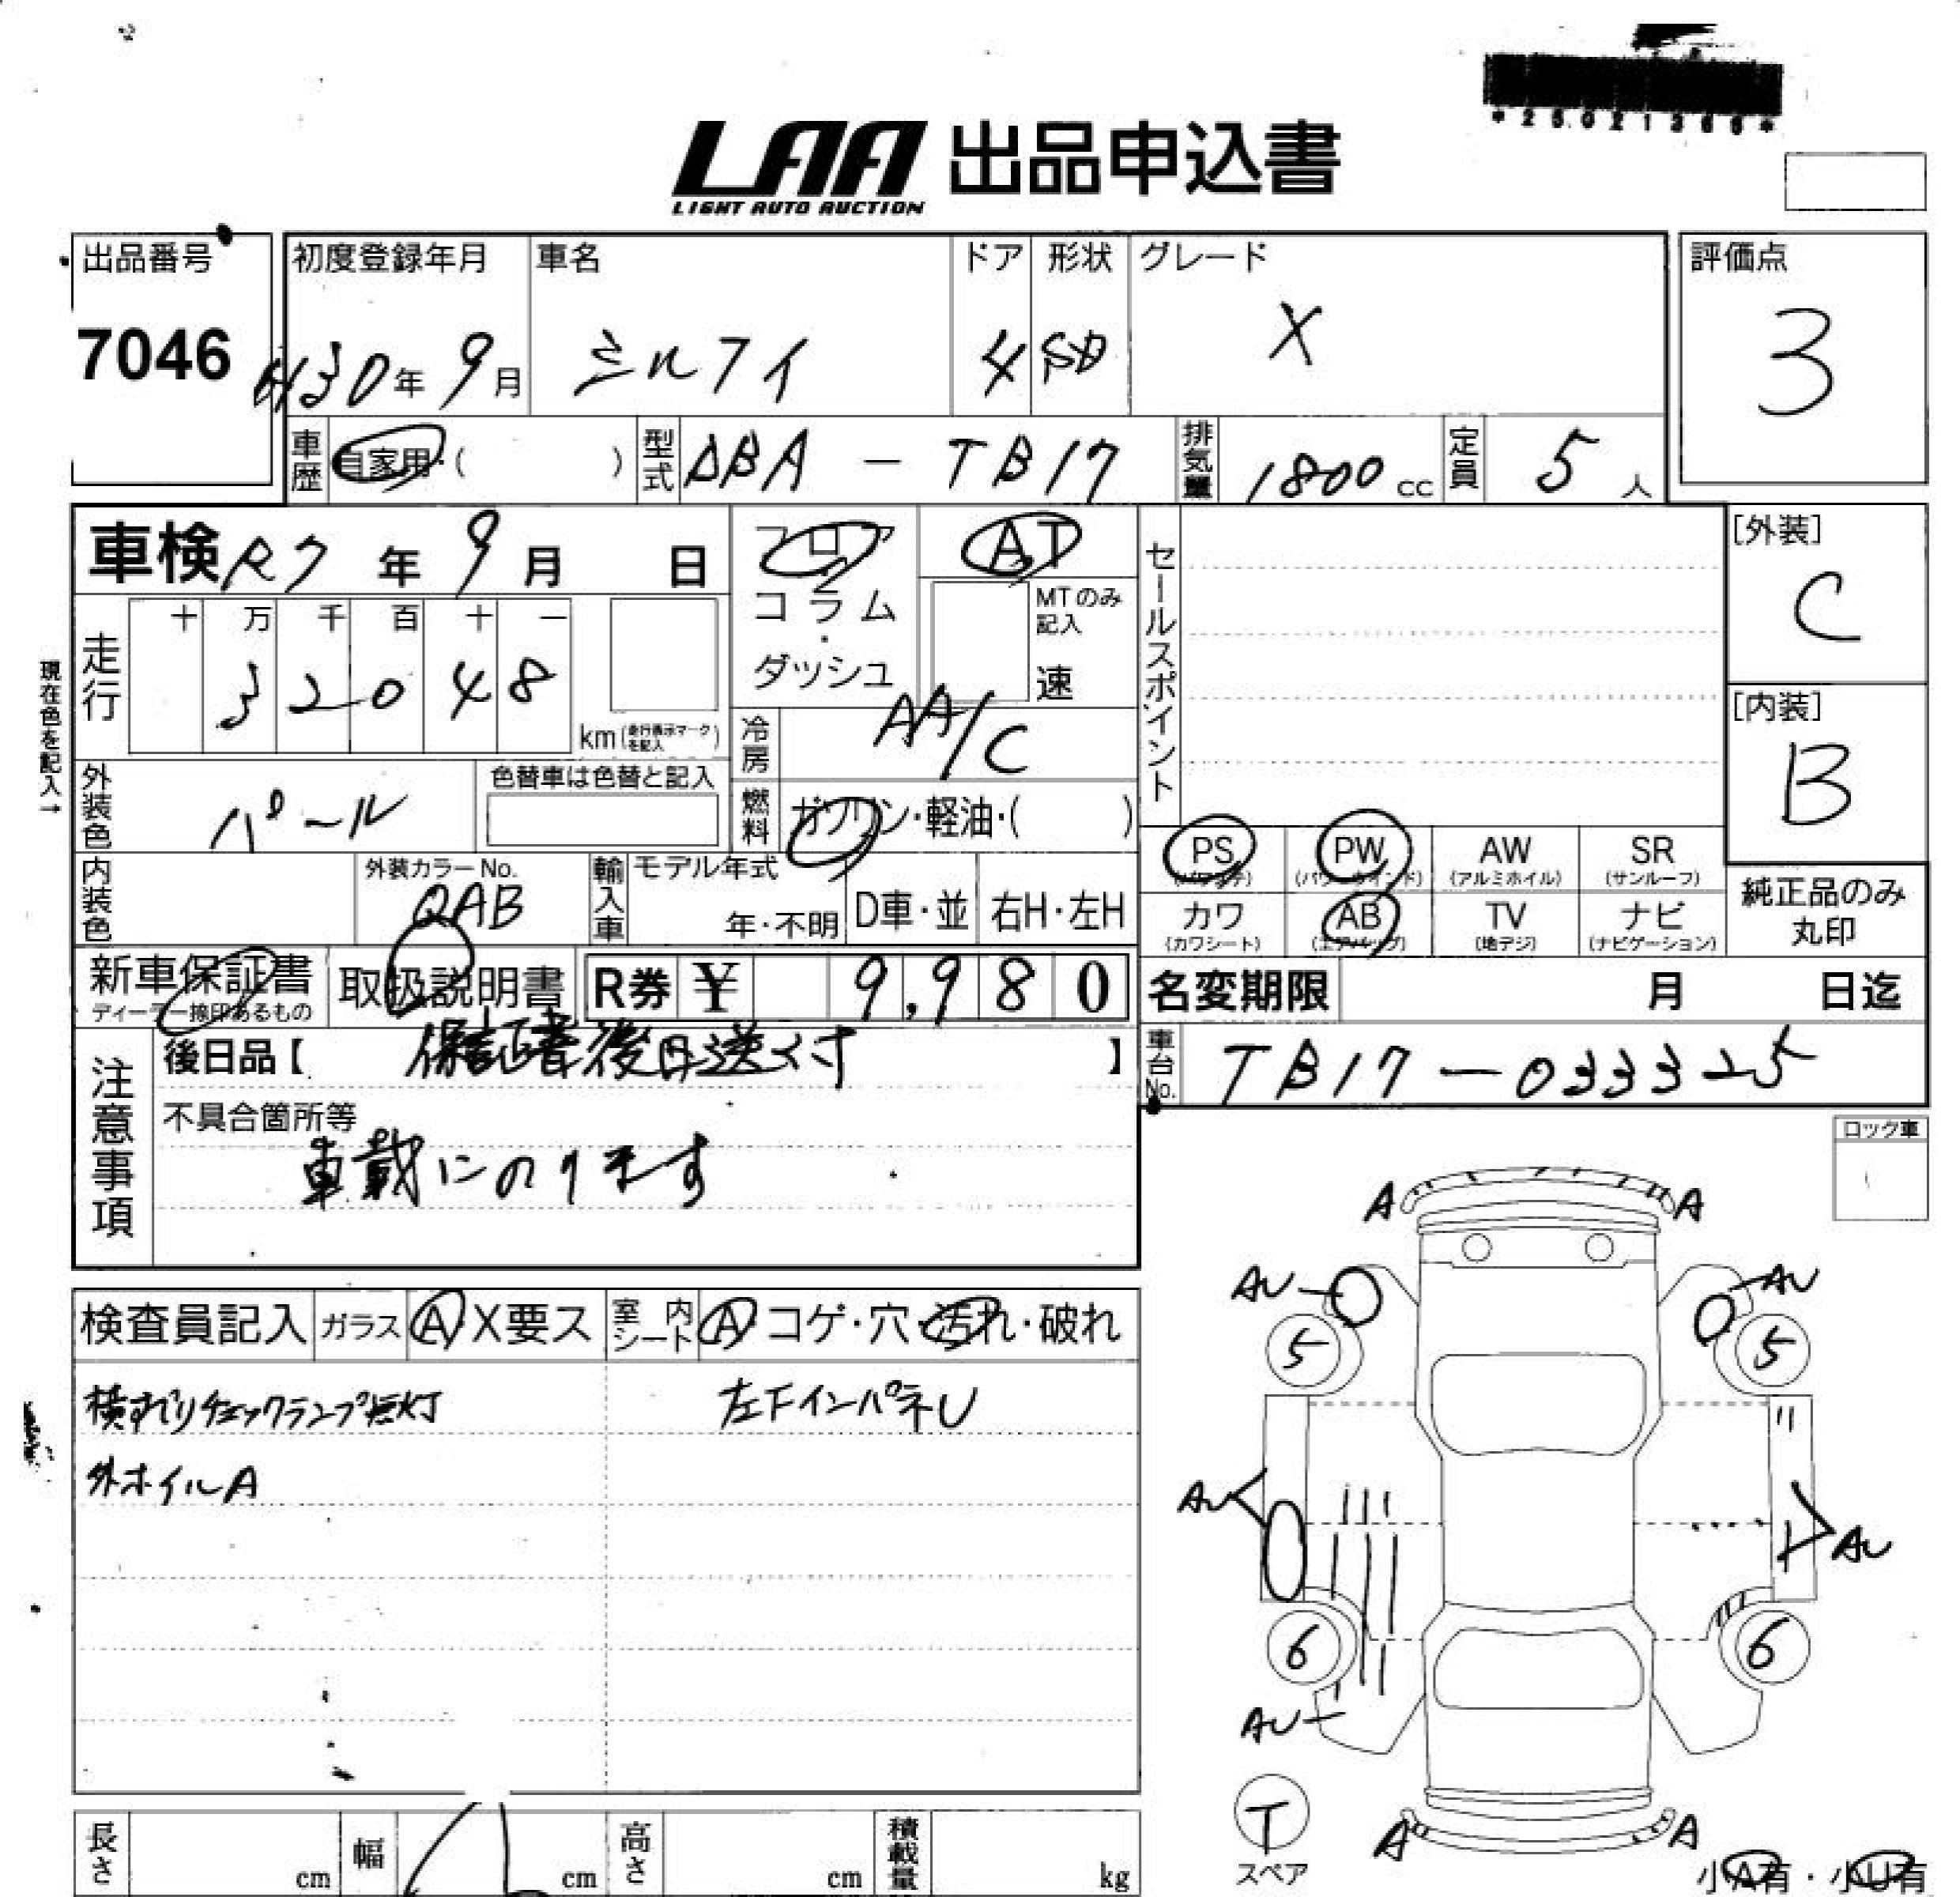 LAA 出品申込書
LIGHT AUTO AUCTION
出品番号
7046
初度登録年月
H30年 9月
車名
シルフイ
ドア
4
形状
SD
グレード
X
評価点
3
車歴
自家用・( )
型式
DBA - TB17
排気量
1800 cc
定員
5 人
車検 R7 年 9 月 日
フロア
・
コラム
・
ダッシュ
AT
MTのみ
記入
速
セールスポイント
[外装]
C
[内装]
B
現在色を記入→
走行
十 万 千 百 十 一
3 2 0 4 8
km(走行表示マークを記入)
冷房
AA/C
外装色
パール
色替車は色替と記入
燃料
ガソリン・軽油・( )
PS
(パワステ)
PW
(パワーウインド)
AW
(アルミホイル)
SR
(サンルーフ)
カワ
(カワシート)
AB
(エアバッグ)
TV
(地デジ)
ナビ
(ナビゲーション)
純正品のみ
丸印
内装色
外装カラーNo.
QAB
輸入車
モデル年式
年・不明
D車・並
右H・左H
新車保証書
ディーラー捺印あるもの
取扱説明書
R券 ¥ 9,980
名変期限 月 日迄
車台No.
TB17-033325
注意事項
後日品【 保証書後日送付 】
不具合箇所等
車載にのります
ロック車
検査員記入
ガラス
A X要ス
室内シート
A コゲ・穴・汚れ・破れ
横すべりチェックランプ点灯
左FインパネU
外ホイルA
A A
AU AU
5 5
AU AU
6 6
AU
T
スペア
A A
小A有・小U有
長さ cm
幅 cm
高さ cm
積載量 kg